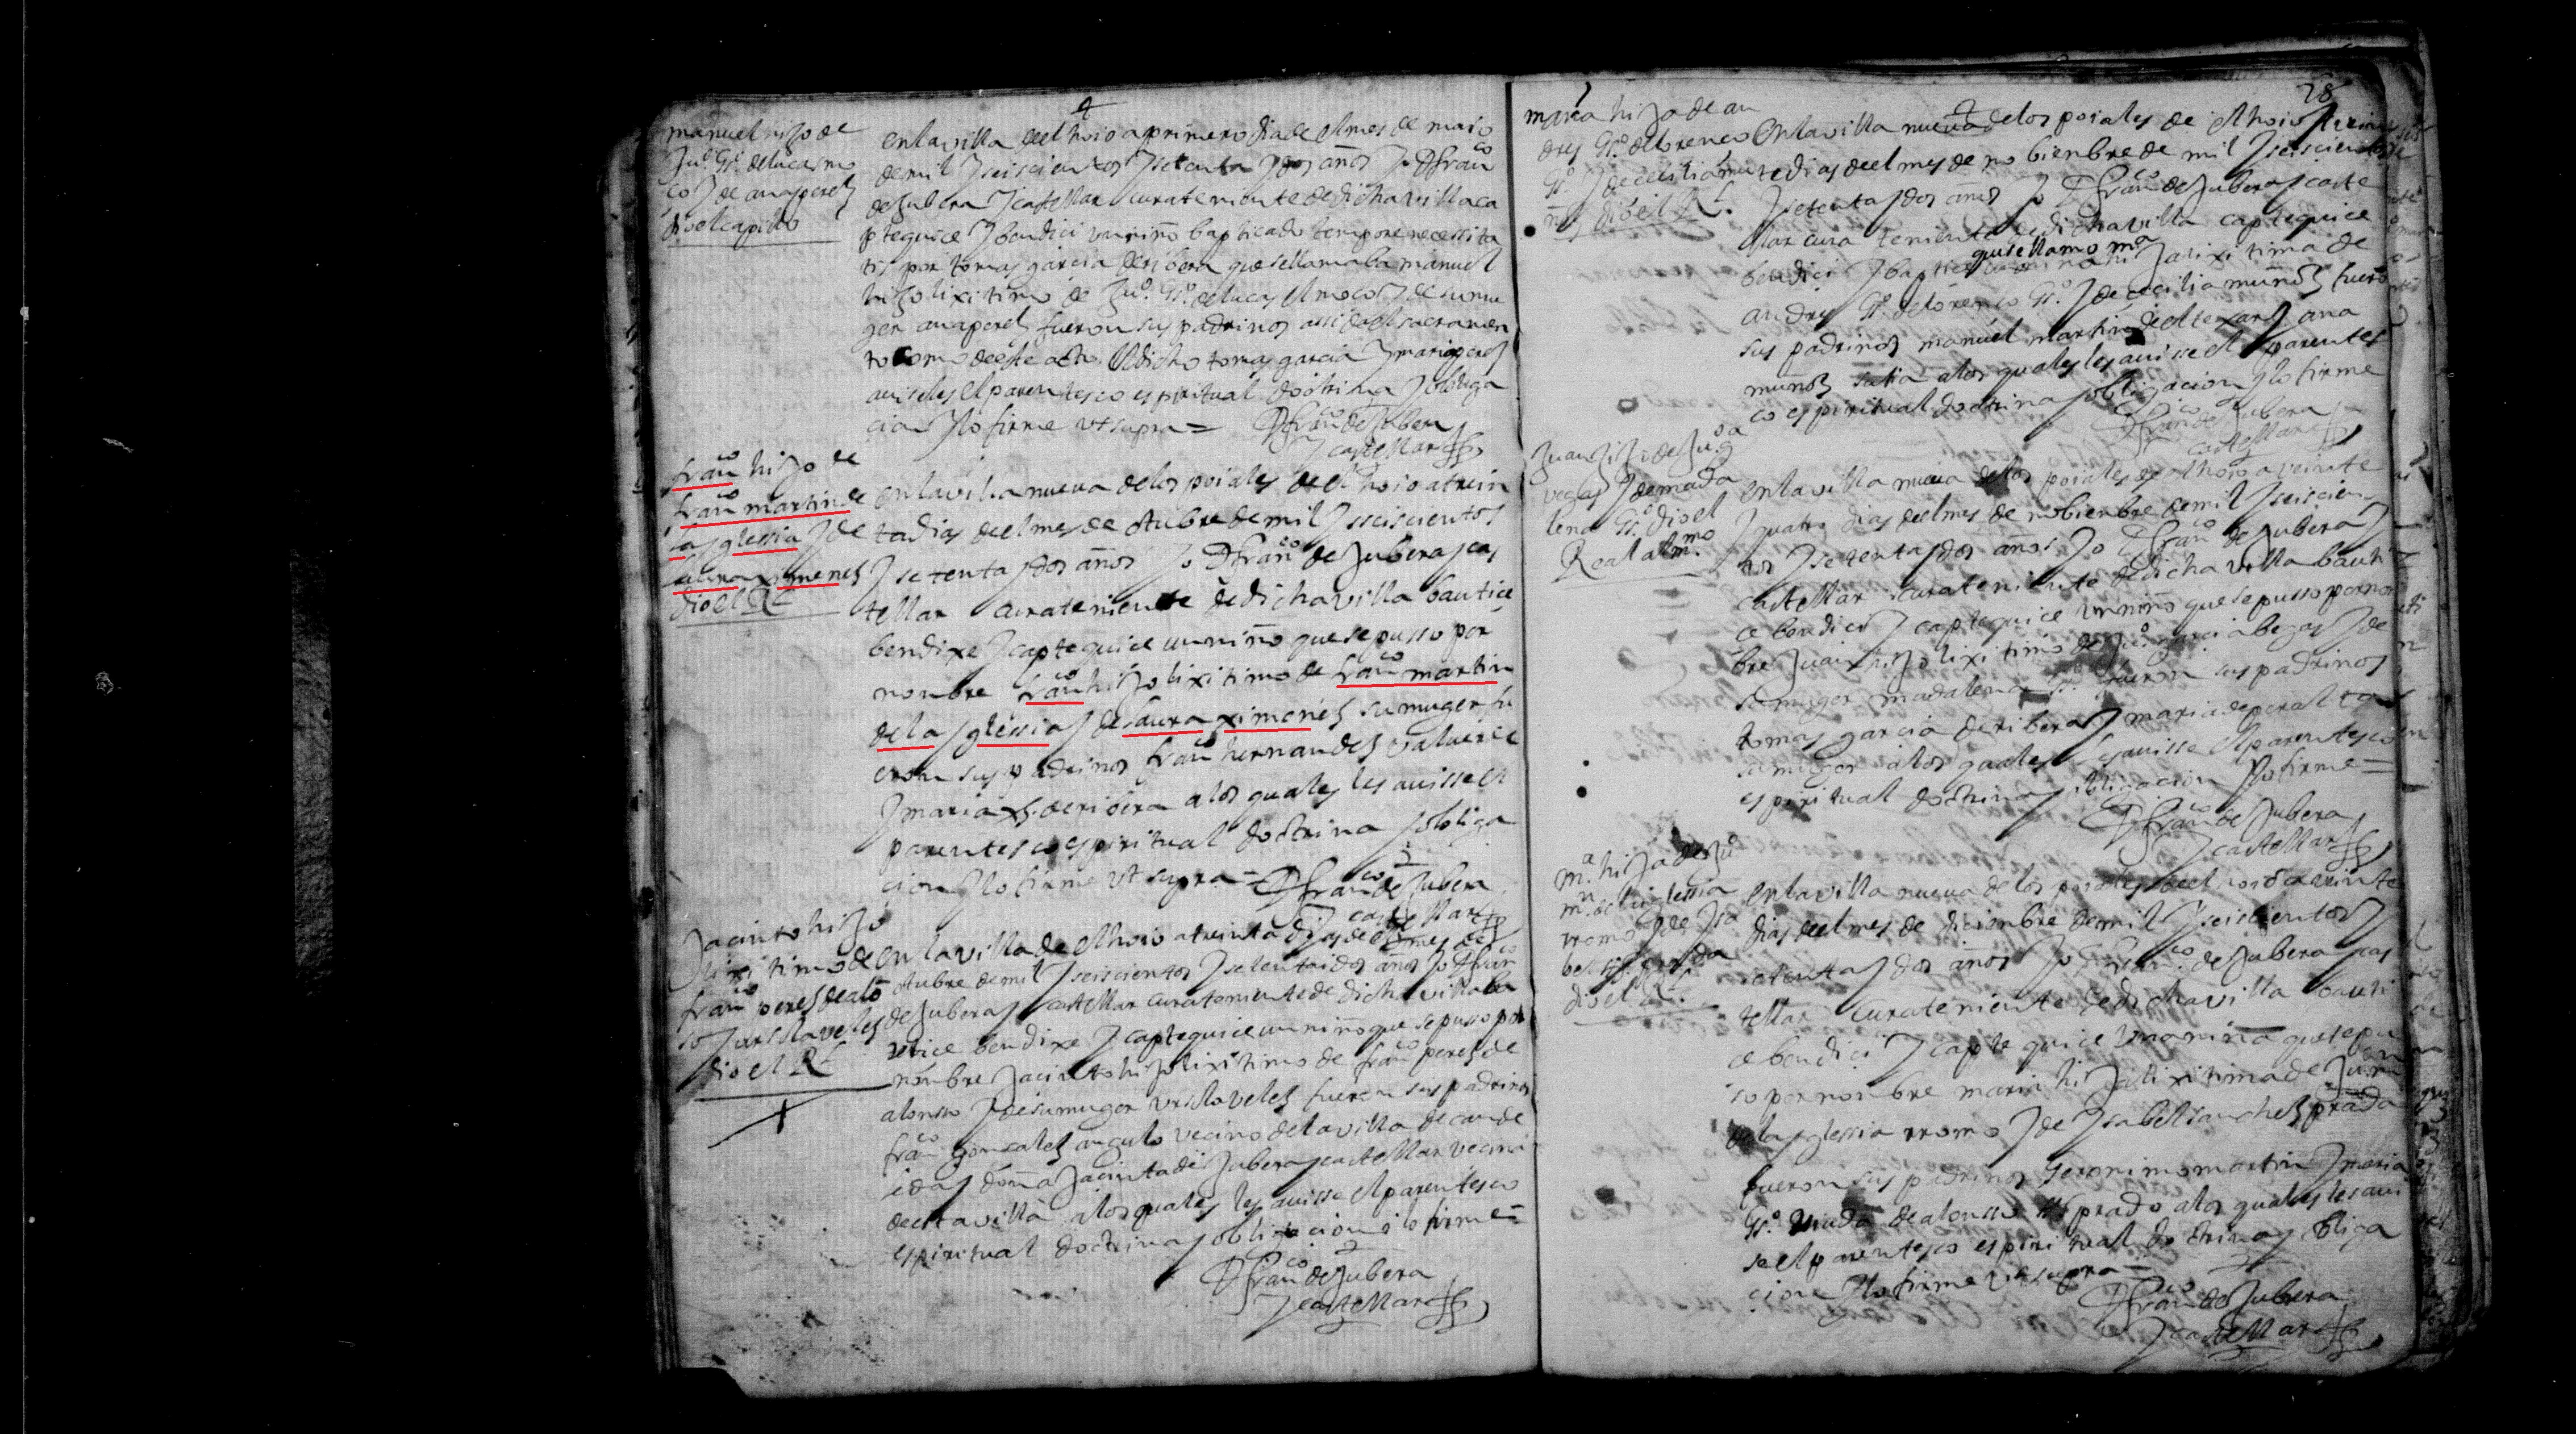 manuel hijo de
Juº. Gª. de lucas mo
ço y de ana perez
dio el capillo
en la villa de el hoio a primero dia de el mes de maio
de mil y seiscientos y setenta y dos años yo D franco
de Jubera y castellar cura teniente de dicha villa ca
ptequice y bendici un niño bapticado tempore necessita
tis por tomas garcia de ribera que se llamaba manuel
hijo lixitimo de Juº. Gª. de lucas el moço y de su mu
ger ana perez fueron sus padrinos assi de el sacramen
to como de este acto el dicho tomas garcia y maria perez
auiseles el parentesco espiritual doctrina y obliga
cion y lo firme vt supra =
D franco de Jubera
y castellar
franco hijo de
franco martin de
la yglessia y de
laura ximenez
dio el Rl
en la villa nueva de los poiales de el hoio a trein
ta dias de el mes de otubre de mil y seiscientos
y setenta y dos años yo D franco de Jubera y cas
tellar cura teniente de dicha villa bautice
bendixe y captequice un niño que se pusso por
nombre franco hijo lixitimo de franco martin
de la yglessia y de laura ximenez su muger fu
eron sus padrinos franco hernandez
y maria de ribera a los quales les auisse el
parentesco espiritual doctrina y obliga
cion y lo firme vt supra =
D franco de Jubera
y castellar
Jacinto hijo
lixitimo de
franco perez de alon
so y ursula velez
dio el Rl
en la villa de el hoio a treinta dias de el mes de
otubre de mil y seiscientos y setenta i dos años yo D fran
de Jubera y castellar cura teniente de dicha villa ba
utice bendixe y captequice un niño que se pusso por
nombre Jacinto hijo lixitimo de franco perez de
alonsso y de su muger ursula velez fueron sus padrinos
franco gonzalez angulo vecino de la villa de caude
i doña Jacinta de Jubera y castellar vecina
de esta villa a los quales les auisse el parentesco
espiritual doctrina y obligacion i lo firme =
D franco de Jubera
y castellar
28
maria hija de an
dres Gª. de lorenço
Gª. y de cecilia mu
ñoz dio el Rl.
en la villa nueva de los poiales de el hoio
dias de el mes de nobienbre de mil y seiscientos
y setenta y dos años yo D franco de Jubera y caste
llar cura teniente de dicha villa captequice
que se llamo ma
bendici y baptice hija lixitima de
andres Gª. de lorenço Gª. y de cecilia muñoz fueron
sus padrinos manuel martin y ana
muñoz a los quales les auisse el parentes
co espiritual doctrina y obligacion y lo firme
D franco de Jubera
y castellar
Juan hijo de Juº ga
vegas y de mada
lena Gª. dio el
Real alm.mo
en la villa nueva de los poiales de el hoio a veinte
y quatro dias de el mes de nobienbre de mil y seiscien
tos y setenta y dos años yo D franco de Jubera y
castellar cura teniente de dicha villa bauti
ce bendici y captequice un niño que se pusso por nom
bre Juan hijo lixitimo de Juº garcia begas y de
su muger madalena Gª. fueron sus padrinos
tomas garcia de ribera y maria de peralta
su muger a los quales les auisse el parentesco
espiritual doctrina y obligacion y lo firme =
D franco de Jubera
y castellar
m.a hija de Ju
mn. de la iglessia
rromo y de Isa
bel sz. prada
dio el Rl.
en la villa nueva de los poiales de el hoio a veinte
dias de el mes de diciembre de mil y seiscientos y
setenta y dos años yo D franco. de Jubera y cas
tellar cura teniente de dicha villa bauti
ce bendici y captequice una niña que se pu
so por nombre maria hija lixitima de Ju mn
de la yglessia rromo y de Ysabel sanchez prada
fueron sus padrinos Geronimo martin y maria
Gª. viuda de alonsso prado a los quales les aui
se el parentesco espiritual doctrina y obliga
cion y lo firme vt supra =
D franco de Jubera
y castellar